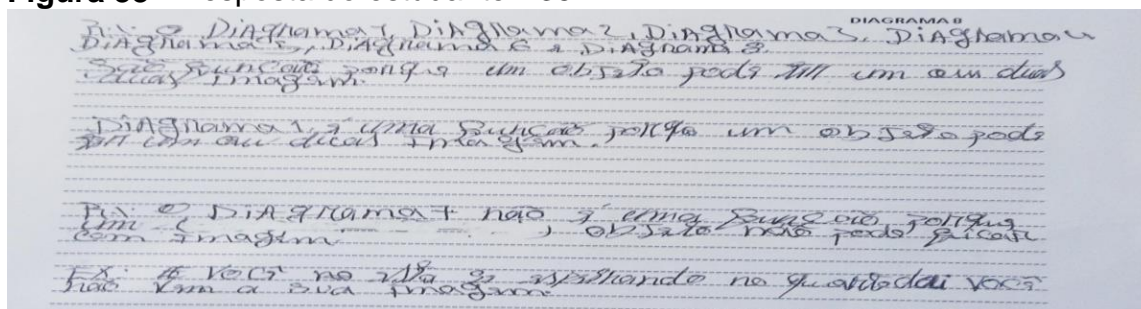 DIAGRAMA 8
R:\ O DiAgrama 1, DiAgrama 2, DiAgrama 3, DiAgrama 4
DiAgrama 5, DiAgrama 6 e DiAgrama 8
São Funções porque um objeto pode ter um ou duas
duas Imagem.
DiAgrama 1, é uma Função porque um objeto pode
ter um ou duas Imagem.
R:\ O, DiAgrama 7 não é uma Função porque
um objeto não pode ficar
com Imagem
EX: você no se espelhando no você
não a sua Imagem